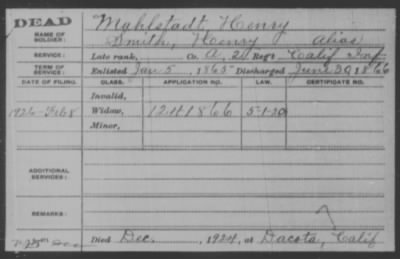 DEAD
Mahlstadt, Henry
NAME OF SOLDIER:
Smith, Henry Alias
SERVICE:
Late rank, Co. A, 2 Reg't Calif Inf
TERM OF SERVICE:
Enlisted Jan 5, 1865 Discharged June 30 1866
DATE OF FILING. CLASS. APPLICATION NO. LAW. CERTIFICATE NO.
Invalid,
1926-Feb 8 Widow, 1241866 5-1-20
Minor,
ADDITIONAL SERVICES:
REMARKS:
Died Dec. , 1924, at Dacota, Calif